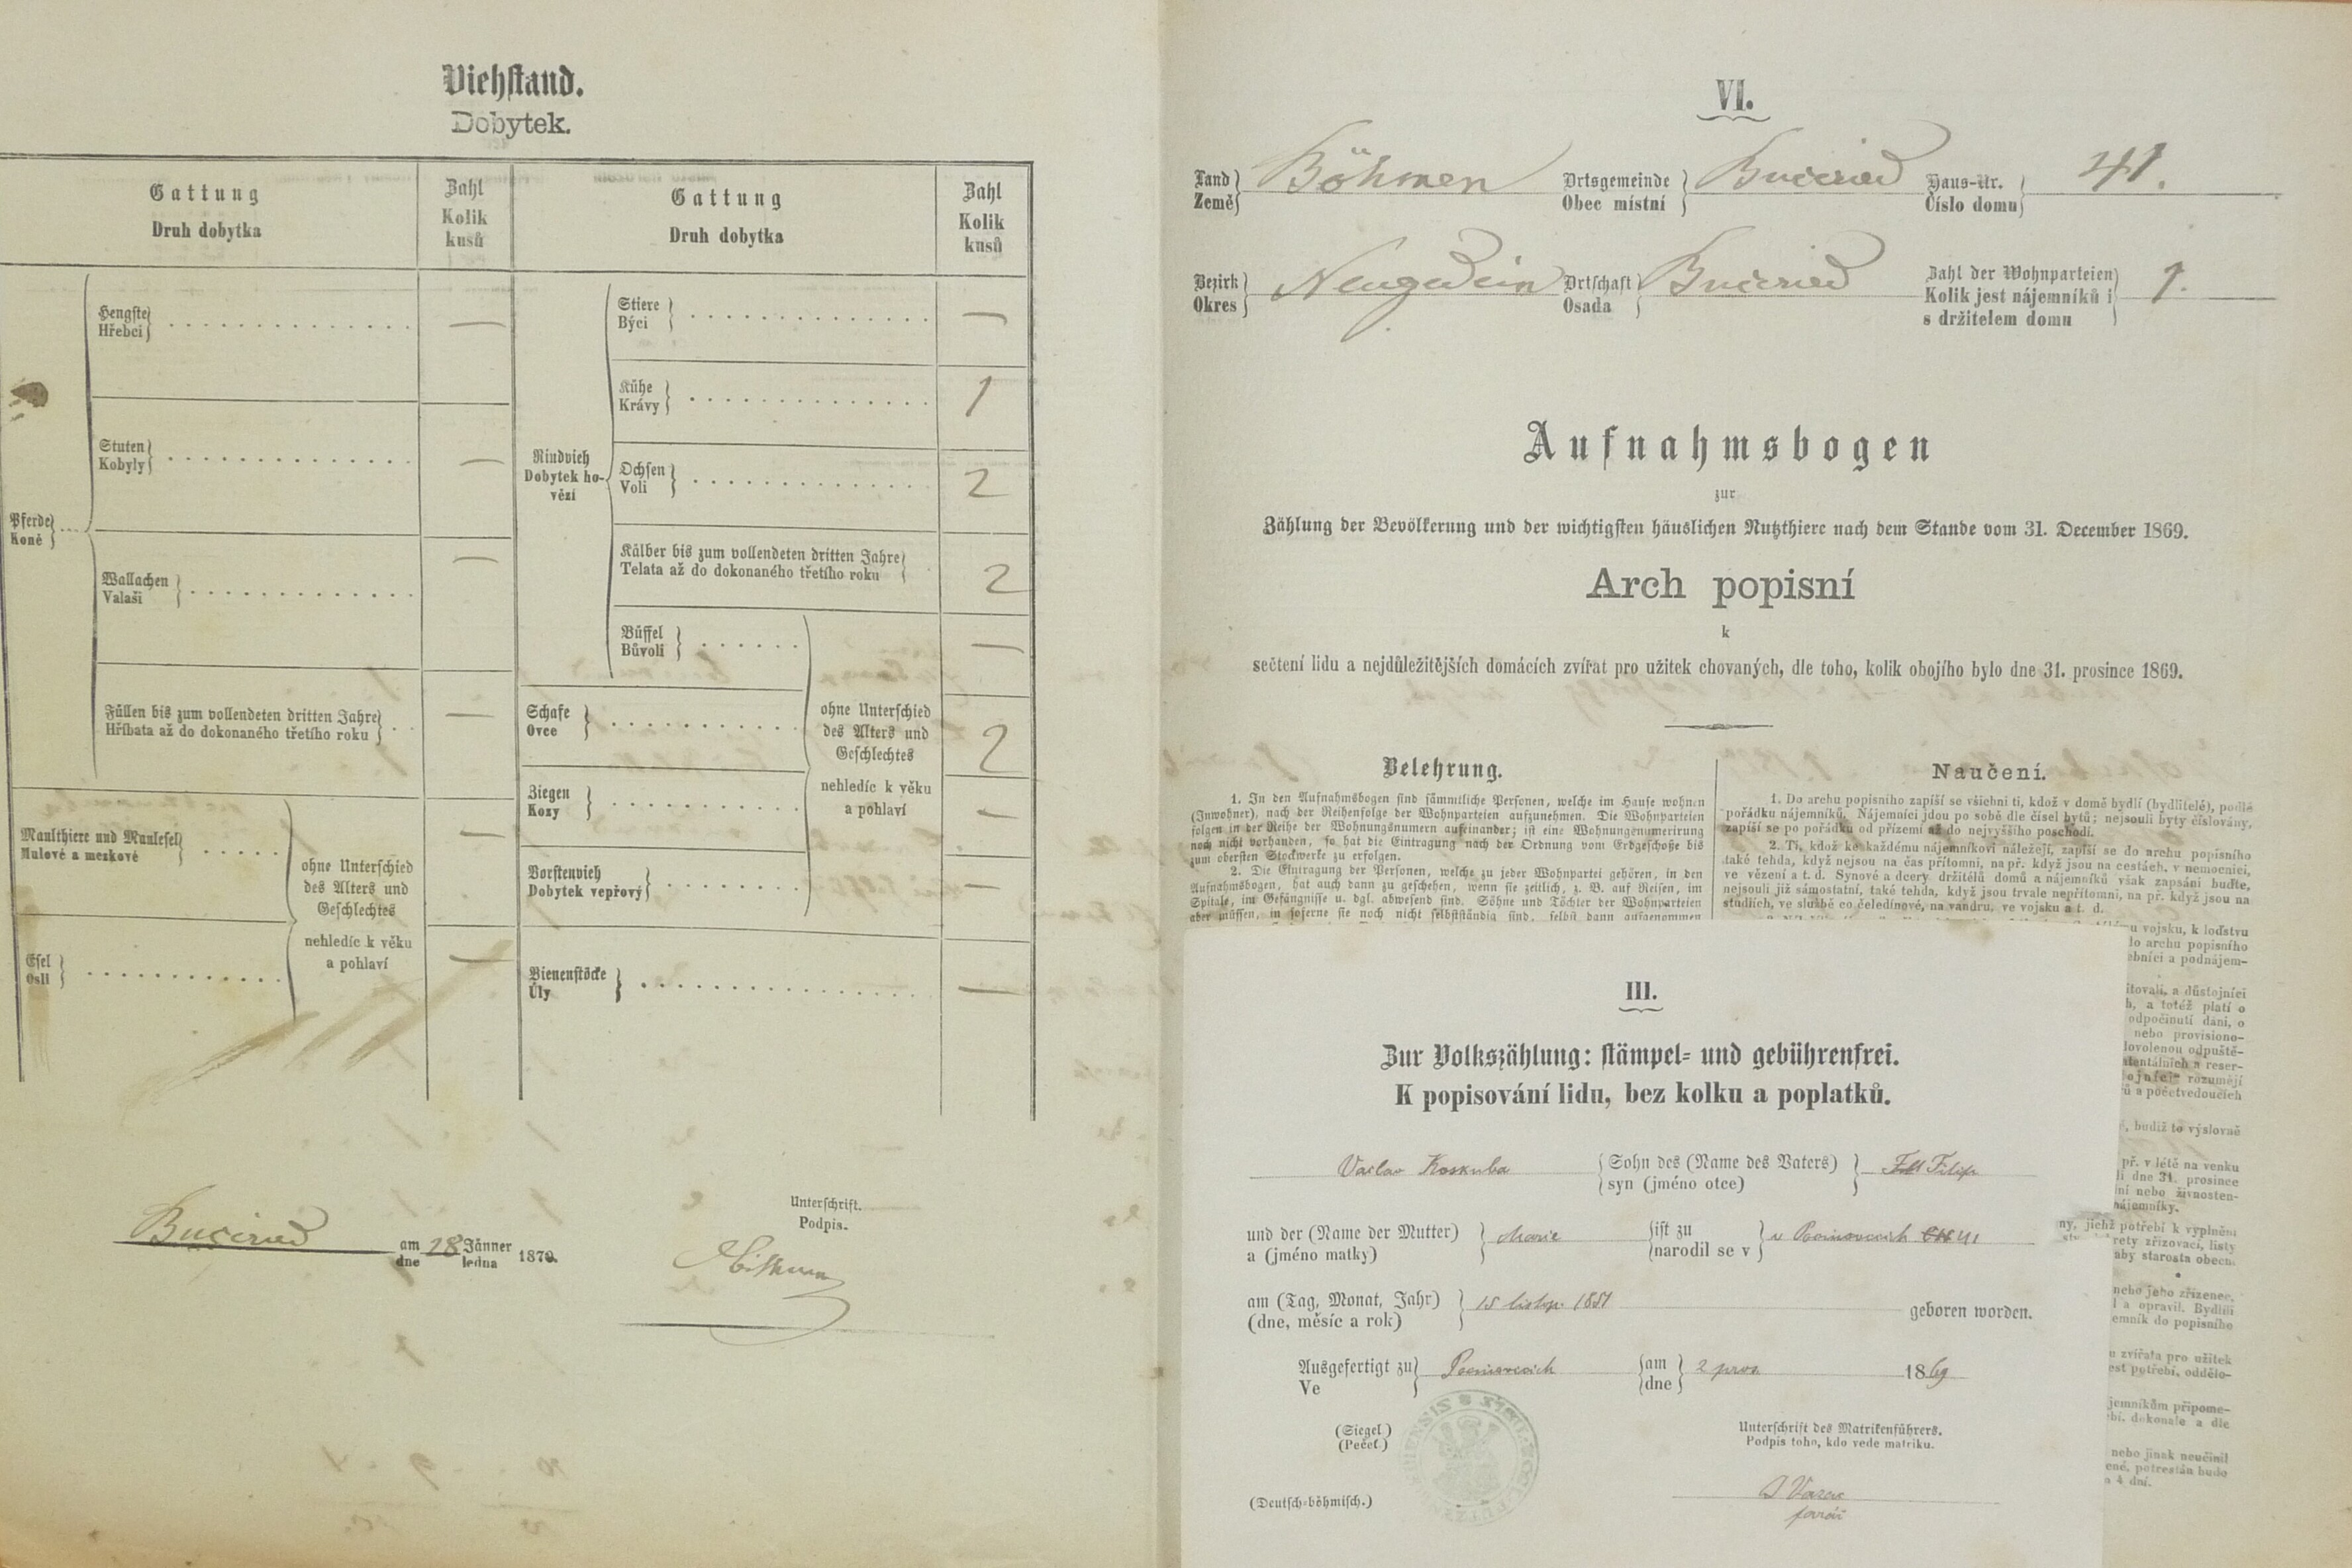 Viehstand.
Dobytek.
Gattung
Druh dobytka
Zahl
Kolik
kusů
Gattung
Druh dobytka
Zahl
Kolik
kusů
Pferde
Koně
Hengste
Hřebci
—
Stuten
Kobyly
—
Wallachen
Valaši
—
Füllen bis zum vollendeten dritten Jahre
Hříbata až do dokonaného třetího roku
—
Maulthiere und Maulesel
Mulové a mezkové
—
Esel
Osli
—
ohne Unterschied
des Alters und
Geschlechtes
nehledíc k věku
a pohlaví
Rindvieh
Dobytek ho-
vězí
Stiere
Býci
—
Kühe
Krávy
1
Ochsen
Voli
2
Kälber bis zum vollendeten dritten Jahre
Telata až do dokonaného třetího roku
2
Büffel
Bůvoli
—
Schafe
Ovce
2
Ziegen
Kozy
—
Borstenvieh
Dobytek vepřový
—
ohne Unterschied
des Alters und
Geschlechtes
nehledíc k věku
a pohlaví
Bienenstöcke
Úly
—
am 28 Jänner 1870.
dne ledna
Unterschrift.
Podpis.
VI.
Land Böhmen Ortsgemeinde Haus-Nr. 41.
Země Obec místní Číslo domu
Bezirk Neugedein Ortschaft Zahl der Wohnparteien 1.
Okres Osada Kolik jest nájemníků i
s držitelem domu
Aufnahmsbogen
zur
Zählung der Bevölkerung und der wichtigsten häuslichen Nutzthiere nach dem Stande vom 31. December 1869.
Arch popisní
k
sečtení lidu a nejdůležitějších domácích zvířat pro užitek chovaných, dle toho, kolik obojího bylo dne 31. prosince 1869.
Belehrung.
1. In den Aufnahmsbogen sind sämmtliche Personen, welche im Hause wohnen
(Inwohner), nach der Reihenfolge der Wohnparteien aufzunehmen. Die Wohnparteien
folgen in der Reihe der Wohnungsnumern aufeinander; ist eine Wohnungsnumerirung
noch nicht vorhanden, so hat die Eintragung nach der Ordnung vom Erdgeschoße bis
zum obersten Stockwerke zu erfolgen.
2. Die Eintragung der Personen, welche zu jeder Wohnpartei gehören, in den
Aufnahmsbogen, hat auch dann zu geschehen, wenn sie zeitlich, z. B. auf Reisen, im
Spitale, im Gefängnisse u. dgl. abwesend sind. Söhne und Töchter der Wohnparteien
aber müssen, in soferne sie noch nicht selbstständig sind, selbst dann aufgenommen
Naučení.
1. Do archu popisního zapíší se všichni ti, kdož v domě bydlí (bydlitelé), podlé
pořádku nájemníků. Nájemníci jdou po sobě dle čísel bytů; nejsouli byty číslovány,
zapíší se po pořádku od přízemí až do nejvyššího poschodí.
2. Ti, kdož ke každému nájemníkovi náležejí, zapíší se do archu popisního
také tehda, když nejsou na čas přítomni, na př. když jsou na cestách, v nemocnici,
ve vězení a t. d. Synové a dcery držitelů domů a nájemníků však zapsáni buďte,
nejsouli již sámostatní, také tehda, když jsou trvale nepřítomni, na př. když jsou na
studiích, ve službě co čeledínové, na vandru, ve vojsku a t. d.
vojsku, k loďstvu
archu popisního
a podnájem-
a důstojníci
a totéž platí o
odpočinutí dani, o
nebo provisiono-
odpuště-
a reser-
rozumějí
a početvedoucích
budiž to výslovně
př. v létě na venku
dne 31. prosince
nebo živnosten-
nájemníky.
jichž potřebí k vyplnění
zřizovací, listy
aby starosta obecní
nebo jeho zřízenec,
a opravil. Bydlili
do popisního
zvířata pro užitek
potřebí, oddělo-
připome-
dokonale a dle
nebo jinak neučinil
potrestán budo
4 dní.
III.
Zur Volkszählung: stämpel- und gebührenfrei.
K popisování lidu, bez kolku a poplatků.
Vaclav Koskuba Sohn des (Name des Vaters) Filip
syn (jméno otce)
und der (Name der Mutter) Marie ist zu v 41
a (jméno matky) narodil se v
am (Tag, Monat, Jahr) 15 listop. 1851 geboren worden.
(dne, měsíc a rok)
Ausgefertigt zu am 2 pros. 1869
Ve dne
(Siegel)
(Pečeť.)
Unterschrift des Matrikenführers.
Podpis toho, kdo vede matriku.
farář
(Deutsch-böhmisch.)